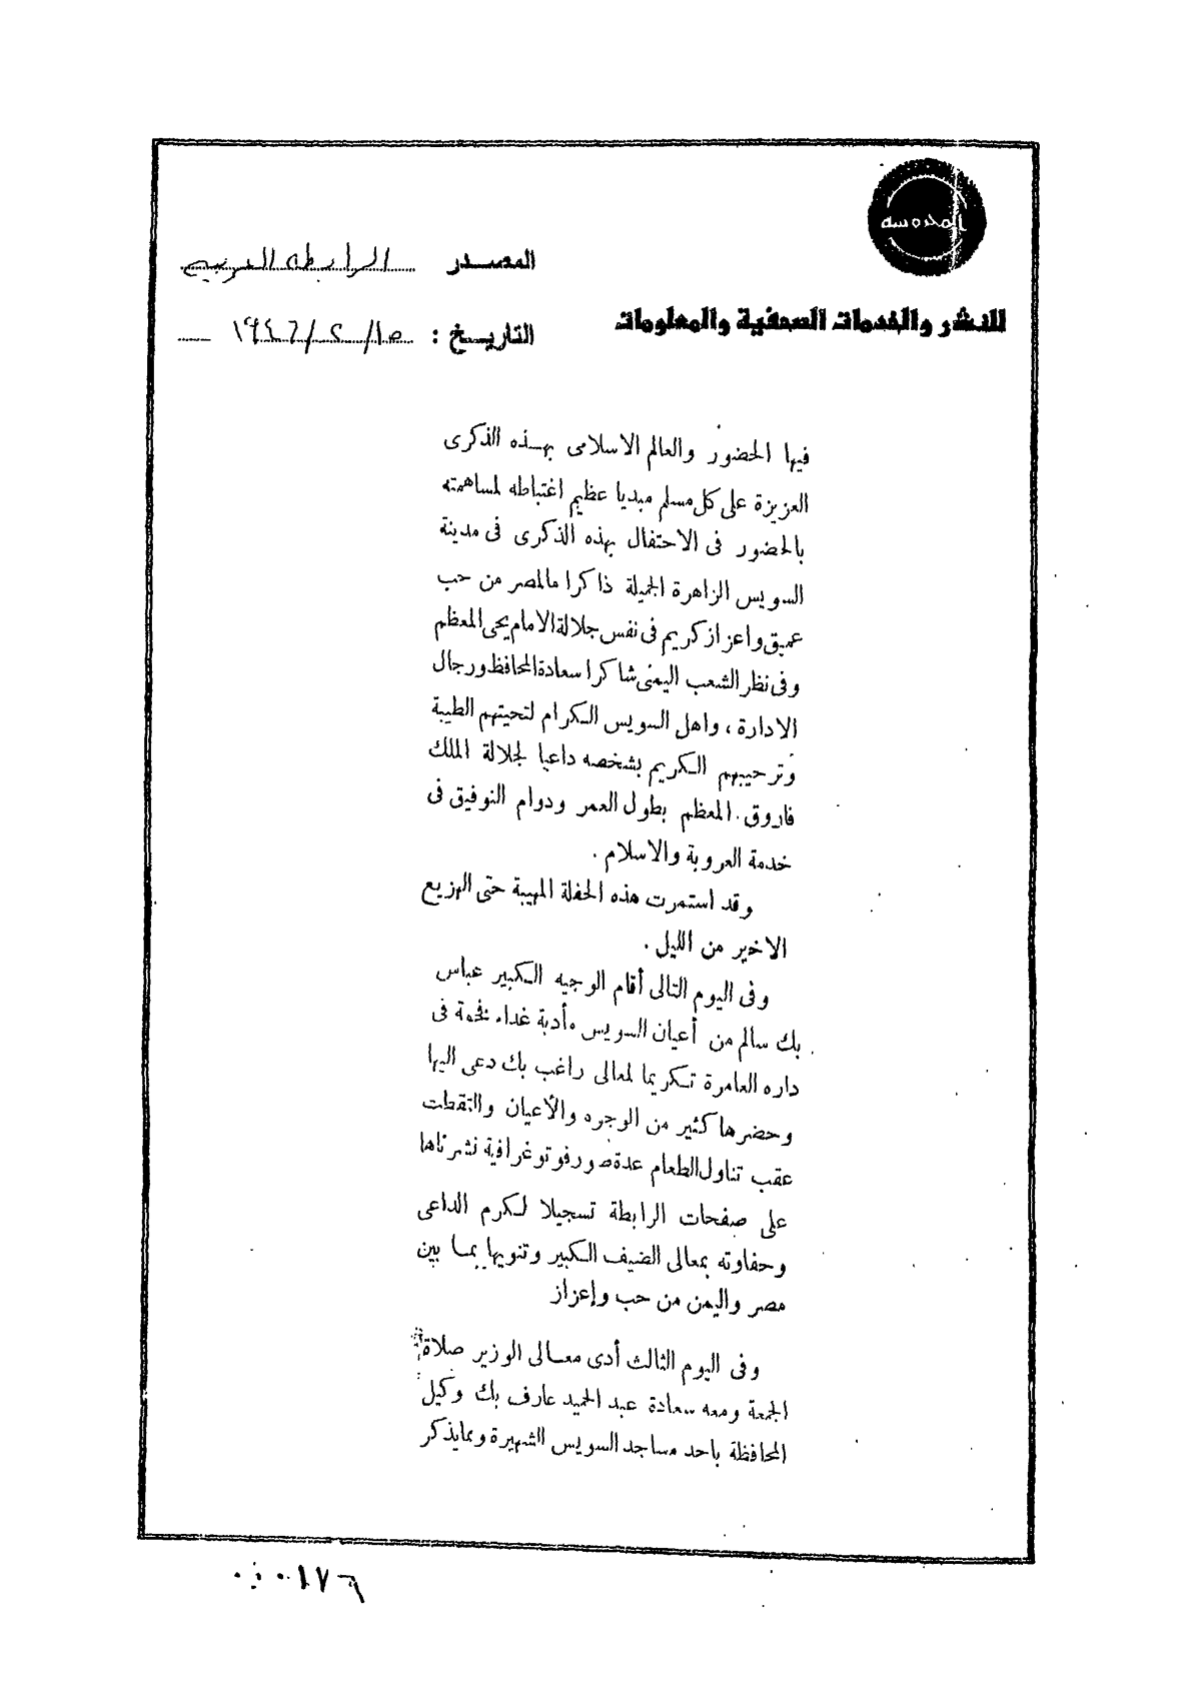 المحروسة
للنشر والخدمات الصحفية والمعلومات
المصدر الرابطة العربية
التاريخ : ١٥/٢/١٩٤٦
فيها الحضور والعالم الاسلامى بهذه الذكرى
العزيزة على كل مسلم مبديا عظيم اغتباطه لمساهمته
بالحضور فى الاحتفال بهذه الذكرى فى مدينة
السويس الزاهرة الجميلة ذاكرا مالمصر من حب
عميق واعزاز كريم فى نفس جلالة الامام يحي المعظم
وفى نظر الشعب اليمنى شاكرا سعادة المحافظ ورجال
الادارة ، واهل السويس الكرام لتحيتهم الطيبة
وترحيبهم الكريم بشخصه داعيا لجلالة الملك
فاروق المعظم بطول العمر ودوام التوفيق فى
خدمة العروبة والاسلام .
وقد استمرت هذه الحفلة المهيبة حتى الهزيع
الاخير من الليل .
وفى اليوم التالى أقام الوجيه الكبير عباس
بك سالم من أعيان السويس مأدبة غداء فخمة فى
داره العامرة تكريما لمعالى راغب بك دعى اليها
وحضرها كثير من الوجوه والأعيان والتقطت
عقب تناول الطعام عدة صور فوتوغرافية نشرناها
على صفحات الرابطة تسجيلا لكرم الداعى
وحفاوته بمعالى الضيف الكبير وتنويها بما بين
مصر واليمن من حب وإعزاز
وفى اليوم الثالث أدى معالى الوزير صلاة
الجمعة ومعه سعادة عبد الحميد عارف بك وكيل
المحافظة باحد مساجد السويس الشهيرة ومما يذكر